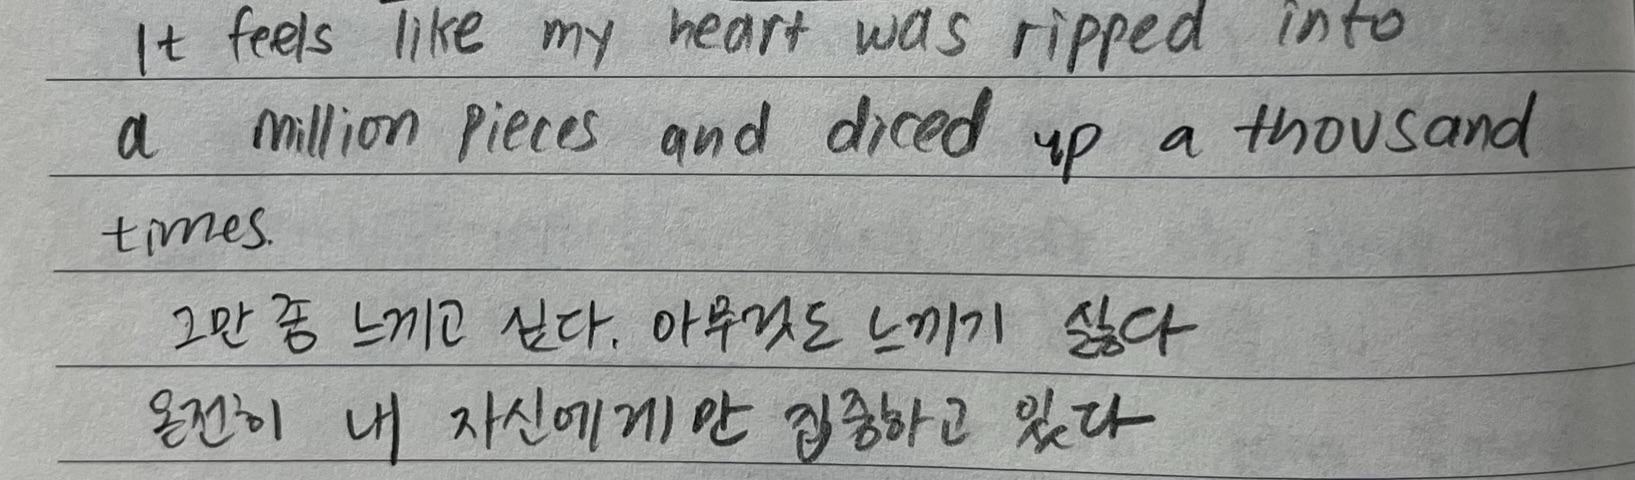 It feels like my heart was ripped into
a million pieces and diced up a thousand
times.
그만 좀 느끼고 싶다. 아무것도 느끼기 싫다
온전히 내 자신에게만 집중하고 있다